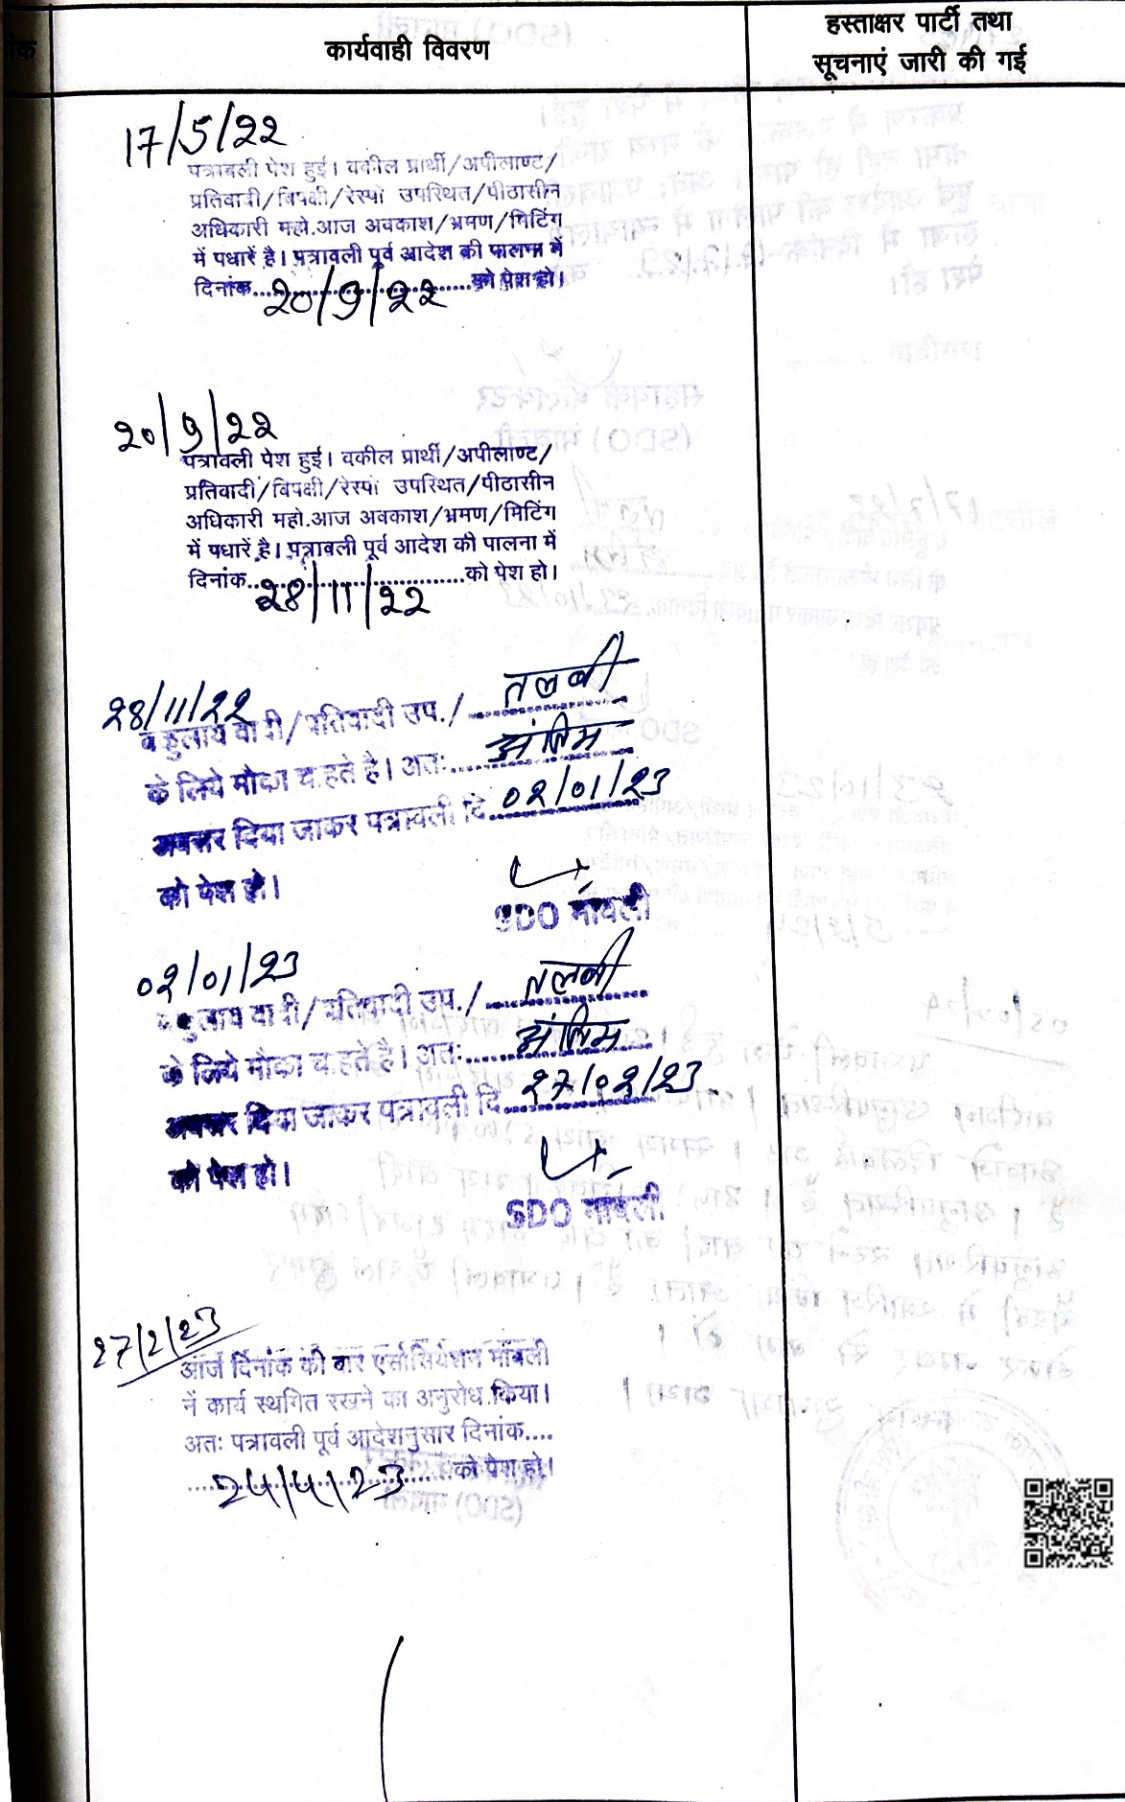 कार्यवाही विवरण
हस्ताक्षर पार्टी तथा
सूचनाएं जारी की गई
17/5/22
पत्रावली पेश हुई। वकील प्रार्थी/अपीलाण्ट/
प्रतिवादी/विपक्षी/रेस्पो उपस्थित/पीठासीन
अधिकारी महो.आज अवकाश/भ्रमण/मिटिंग
में पधारें है। पत्रावली पूर्व आदेश की पालना में
दिनांक..20/9/22..को पेश हो।
20/9/22
पत्रावली पेश हुई। वकील प्रार्थी/अपीलाण्ट/
प्रतिवादी/विपक्षी/रेस्पो उपस्थित/पीठासीन
अधिकारी महो.आज अवकाश/भ्रमण/मिटिंग
में पधारें है। पत्रावली पूर्व आदेश की पालना में
दिनांक..28/11/22..को पेश हो।
28/11/22
वादी/प्रतिवादी उप./ तलबी
के लिये मौका चाहते है। अतः.. अंतिम
अवसर दिया जाकर पत्रावली दि. 02/01/23
को पेश हो।
SDO मावली
02/01/23
वादी/प्रतिवादी उप./ तलबी
के लिये मौका चाहते है। अतः.. अंतिम
अवसर दिया जाकर पत्रावली दि. 27/02/23
को पेश हो।
SDO मावली
27/2/23
आज दिनांक की बार एसोसियेशन मावली
नें कार्य स्थगित रखने का अनुरोध किया।
अतः पत्रावली पूर्व आदेशनुसार दिनांक....
24/4/23 को पेश हो।